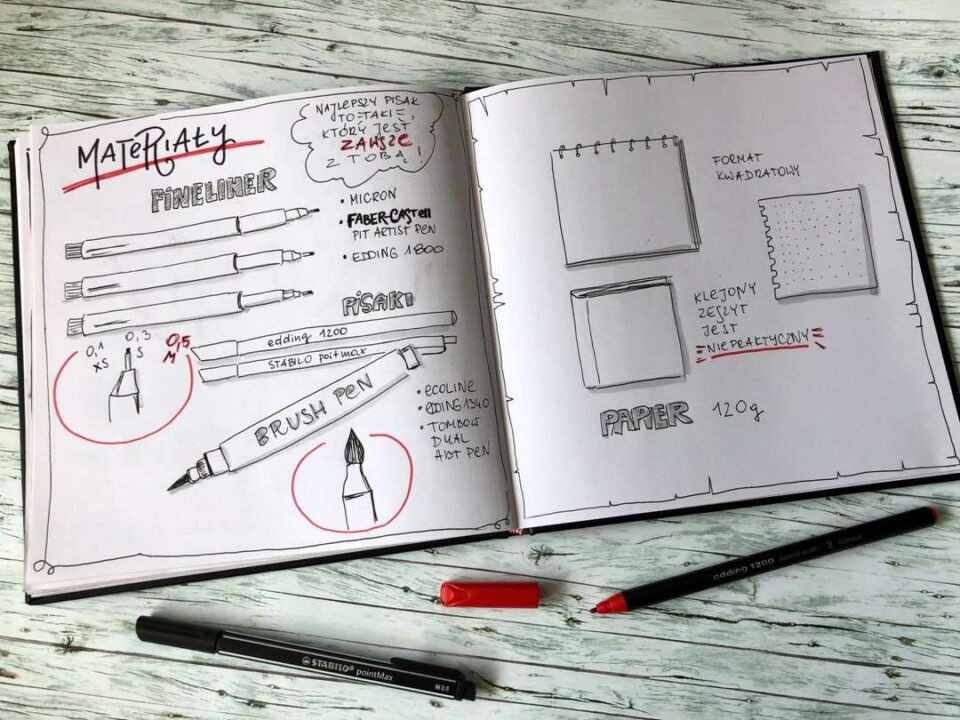 MATERIAŁY
NAJLEPSZY PISAK
TO TAKI,
KTÓRY JEST
ZAWSZE
Z TOBĄ!
FINELINER
• MICRON
• FABER-CASTELL
PIT ARTIST PEN
• EDDING 1800
0,1
XS
0,3
S
0,5
M
PISAKI
edding 1200
STABILO poitmax
BRUSH PEN
• ECOLINE
• EDING 1340
• TOMBOW
DUAL
ABT PEN
FORMAT
KWADRATOWY
KLEJONY
ZESZYT
JEST
NIEPRAKTYCZNY
PAPIER 120g
edding 1200
STABILO pointMax